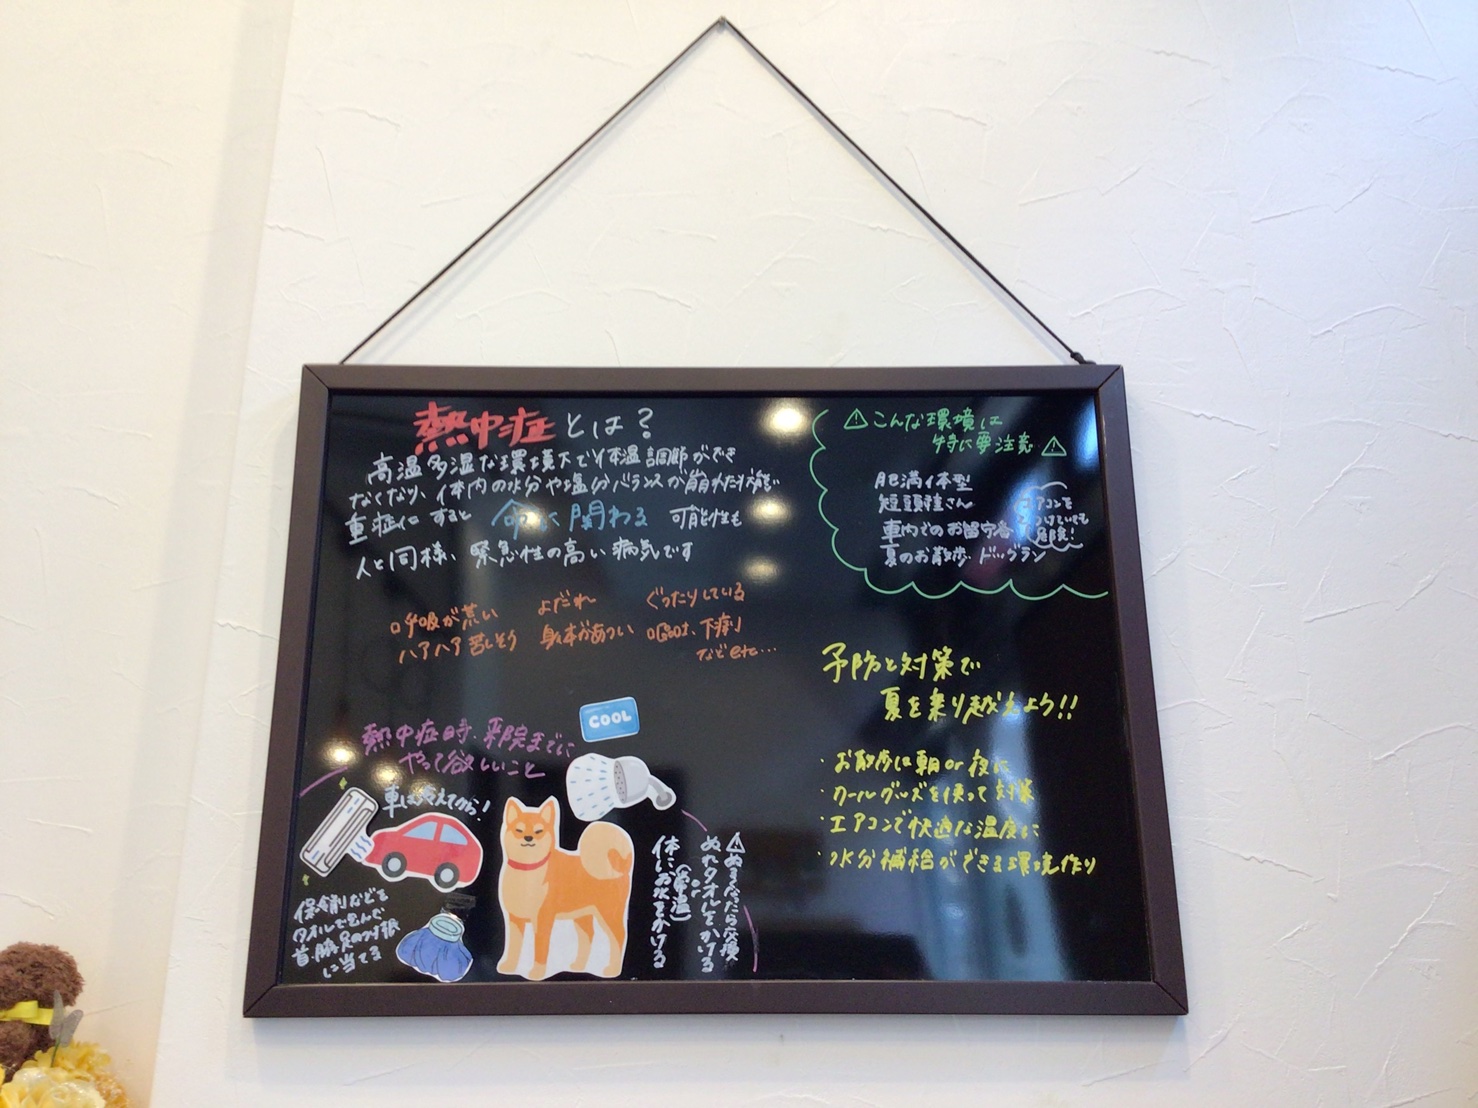 熱中症とは?
高温多湿な環境下で体温調節ができ
なくなり、体内の水分や塩分バランスが崩れた状態で
重症化すると 命に関わる 可能性も
人と同様、緊急性の高い病気です
呼吸が荒い
ハアハア苦しそう
よだれ
身体があつい
ぐったりしている
嘔吐、下痢
など etc…
熱中症時、来院までに
やって欲しいこと
COOL
車は冷えてから!
保冷剤などを
タオルで包んで
首・脇・足のつけ根
に当てる
⚠ぬるくなったら交換
ぬれタオルをかける
or
(常温)
体にお水をかける
⚠こんな環境は
特に要注意⚠
肥満体型
短頭種さん
車内でのお留守番
夏のお散歩・ドッグラン
エアコンを
つけていても
危険!
予防と対策で
夏を乗り越えよう!!
・お散歩は朝or夜に
・クールグッズを使って対策
・エアコンで快適な温度に
・水分補給ができる環境作り